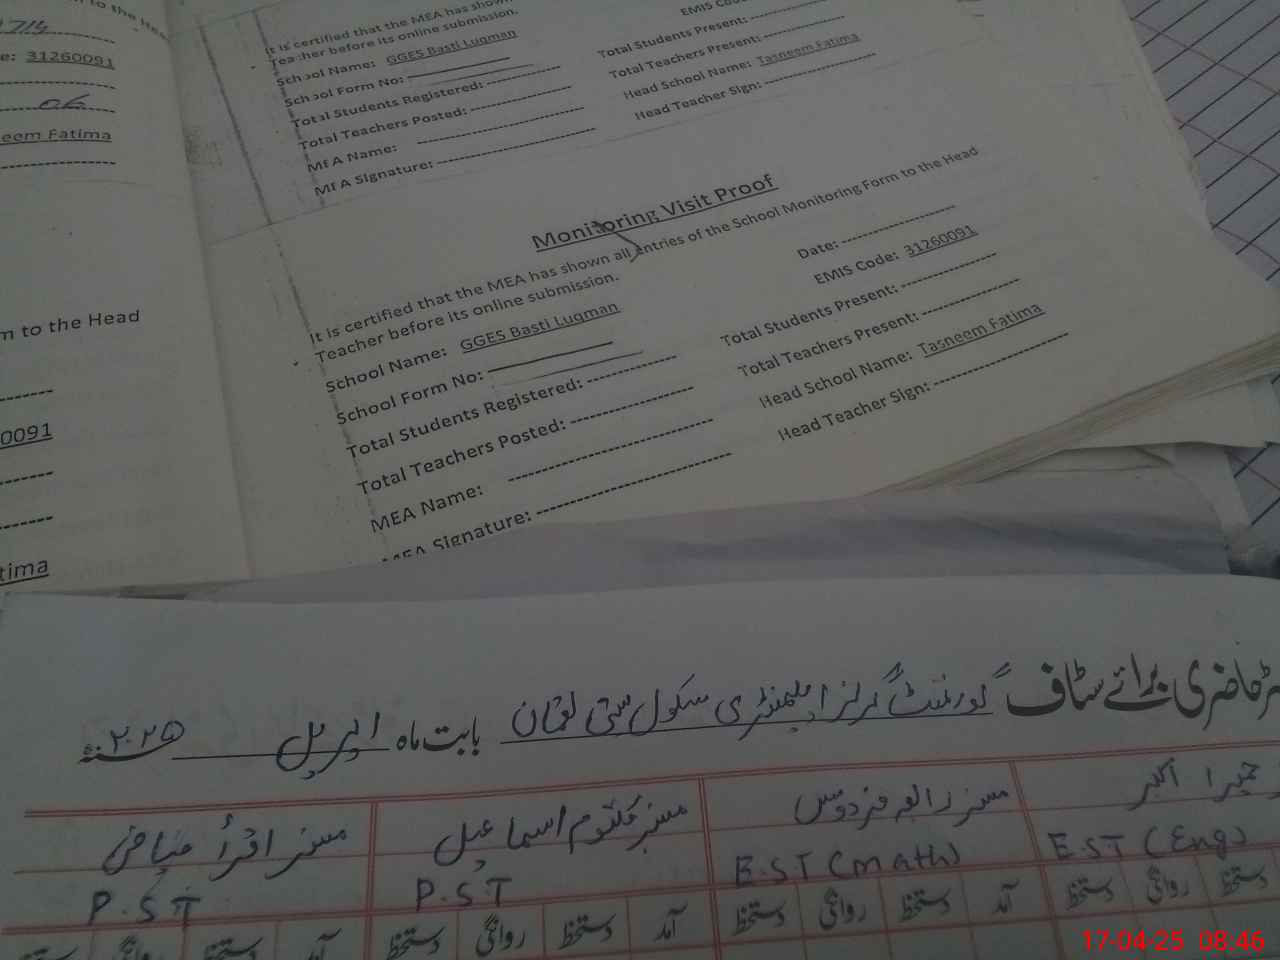 e: 31260091
06
eem Fatima
m to the Head
0091
tima
It is certified that the MEA has shown
Teacher before its online submission.
School Name: GGES Basti Luqman
School Form No:
Total Students Registered:
Total Teachers Posted:
MEA Name:
MEA Signature:
EMIS Code
Total Students Present:
Total Teachers Present:
Head School Name: Tasneem Fatima
Head Teacher Sign:
Monitoring Visit Proof
It is certified that the MEA has shown all entries of the School Monitoring Form to the Head
Teacher before its online submission.
School Name: GGES Basti Luqman
School Form No:
Total Students Registered:
Total Teachers Posted:
MEA Name:
MEA Signature:
Date:
EMIS Code: 31260091
Total Students Present:
Total Teachers Present:
Head School Name: Tasneem Fatima
Head Teacher Sign:
حاضری برائے سٹاف گورنمنٹ گرلز ایلیمنٹری سکول بستی لقمان بابت ماہ اپریل سنہ ۲۰۲۵
حمیرا اکبر مسز رابعہ فردوس مسز کلثوم اسماعیل مسز اقرأ ریاض
E.ST (Eng) E.ST (math) P.ST P.ST
دستخط روانگی دستخط آمد دستخط روانگی دستخط آمد دستخط روانگی دستخط آمد
17-04-25 08:46